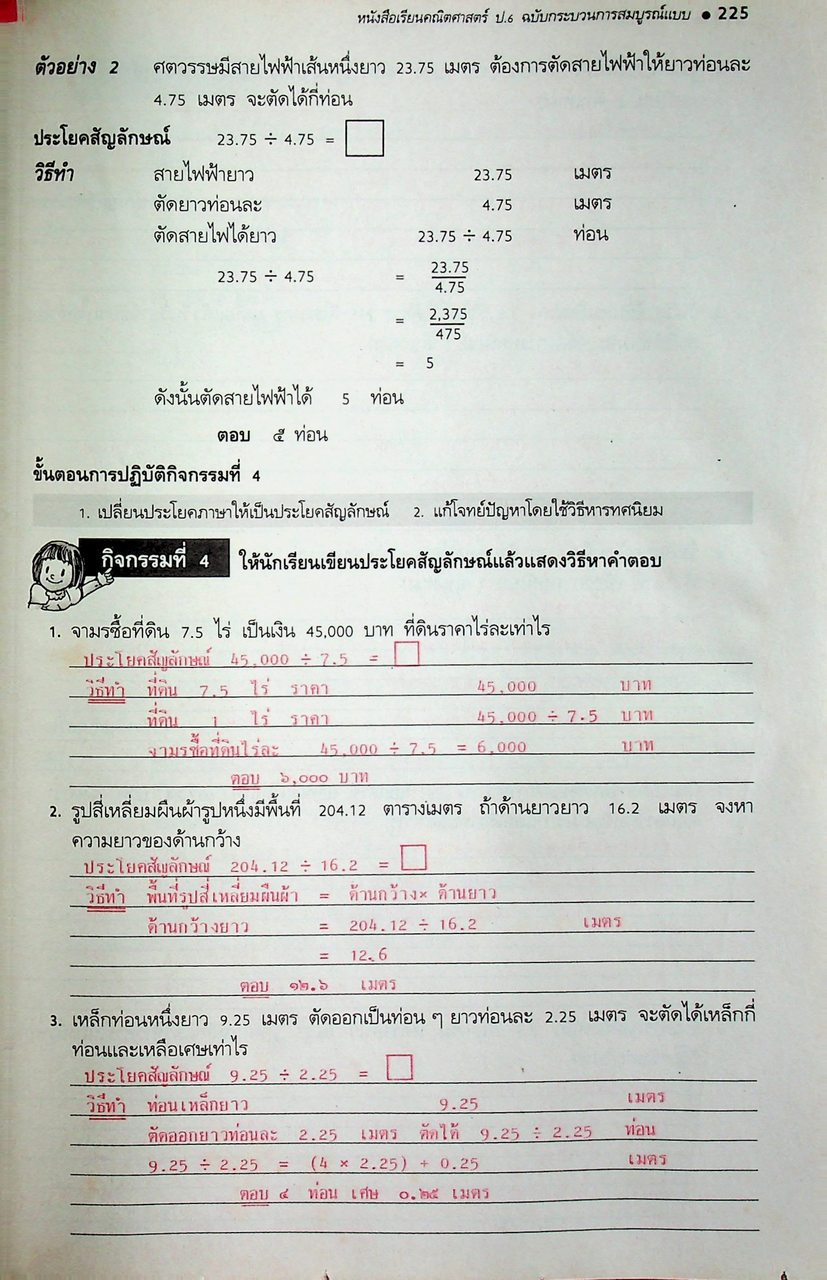 หนังสือเรียนคณิตศาสตร์ ป.๖ ฉบับกระบวนการสมบูรณ์แบบ ● 225
ตัวอย่าง 2 ศตวรรษมีสายไฟฟ้าเส้นหนึ่งยาว 23.75 เมตร ต้องการตัดสายไฟฟ้าให้ยาวท่อนละ
4.75 เมตร จะตัดได้กี่ท่อน
ประโยคสัญลักษณ์ 23.75 ÷ 4.75 = □
วิธีทำ สายไฟฟ้ายาว 23.75 เมตร
ตัดยาวท่อนละ 4.75 เมตร
ตัดสายไฟได้ยาว 23.75 ÷ 4.75 ท่อน
23.75 ÷ 4.75 = 23.75/4.75
= 2,375/475
= 5
ดังนั้นตัดสายไฟฟ้าได้ 5 ท่อน
ตอบ ๕ ท่อน
ขั้นตอนการปฏิบัติกิจกรรมที่ 4
1. เปลี่ยนประโยคภาษาให้เป็นประโยคสัญลักษณ์ 2. แก้โจทย์ปัญหาโดยใช้วิธีหารทศนิยม
กิจกรรมที่ 4 ให้นักเรียนเขียนประโยคสัญลักษณ์แล้วแสดงวิธีหาคำตอบ
1. จามรซื้อที่ดิน 7.5 ไร่ เป็นเงิน 45,000 บาท ที่ดินราคาไร่ละเท่าไร
ประโยคสัญลักษณ์ 45,000 ÷ 7.5 = □
วิธีทำ ที่ดิน 7.5 ไร่ ราคา 45,000 บาท
ที่ดิน 1 ไร่ ราคา 45,000 ÷ 7.5 บาท
จามรซื้อที่ดินไร่ละ 45,000 ÷ 7.5 = 6,000 บาท
ตอบ ๖,๐๐๐ บาท
2. รูปสี่เหลี่ยมผืนผ้ารูปหนึ่งมีพื้นที่ 204.12 ตารางเมตร ถ้าด้านยาวยาว 16.2 เมตร จงหา
ความยาวของด้านกว้าง
ประโยคสัญลักษณ์ 204.12 ÷ 16.2 = □
วิธีทำ พื้นที่รูปสี่เหลี่ยมผืนผ้า = ด้านกว้าง× ด้านยาว
ด้านกว้างยาว = 204.12 ÷ 16.2 เมตร
= 12.6
ตอบ ๑๒.๖ เมตร
3. เหล็กท่อนหนึ่งยาว 9.25 เมตร ตัดออกเป็นท่อน ๆ ยาวท่อนละ 2.25 เมตร จะตัดได้เหล็กกี่
ท่อนและเหลือเศษเท่าไร
ประโยคสัญลักษณ์ 9.25 ÷ 2.25 = □
วิธีทำ ท่อนเหล็กยาว 9.25 เมตร
ตัดออกยาวท่อนละ 2.25 เมตร ตัดได้ 9.25 ÷ 2.25 ท่อน
9.25 ÷ 2.25 = (4 × 2.25) + 0.25 เมตร
ตอบ ๔ ท่อน เศษ ๐.๒๕ เมตร